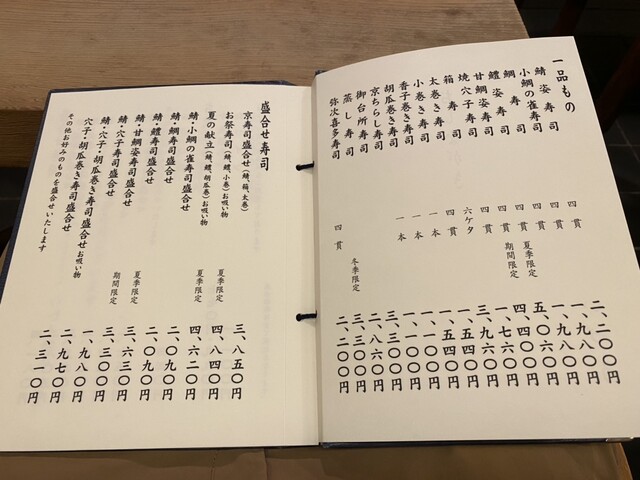 一品もの
鯖姿寿司 四貫 二、二〇〇円
小鯛の雀寿司 四貫 一、九八〇円
鯛寿司 四貫 一、九八〇円
鱧姿寿司 四貫 夏季限定 五、〇六〇円
甘鯛姿寿司 四貫 期間限定 四、四〇〇円
焼穴子寿司 四貫 一、七六〇円
箱寿司 六ケタ 三、九六〇円
太巻き寿司 四貫 一、五四〇円
小巻き寿司 一本 一、五四〇円
香子巻き寿司 一本 一、一〇〇円
胡瓜巻き寿司 一本 一、一〇〇円
京ちらし寿司 三、三〇〇円
御台所寿司 二、八六〇円
蒸し寿司 冬季限定 三、三〇〇円
弥次喜多寿司 四貫 二、二〇〇円
盛合せ寿司
京寿司盛合せ(鯖、箱、太巻) 三、八五〇円
お祭寿司(鯖、鱧、小巻)お吸い物 夏季限定 四、八四〇円
夏の献立(鯖、鱧、胡瓜巻)お吸い物 夏季限定 四、六二〇円
鯖・小鯛の雀寿司盛合せ 二、〇九〇円
鯖・鯛寿司盛合せ 二、〇九〇円
鯖・鱧寿司盛合せ 夏季限定 三、六三〇円
鯖・甘鯛姿寿司盛合せ 期間限定 三、三〇〇円
鯖・穴子寿司盛合せ 一、九八〇円
穴子・胡瓜巻き寿司盛合せ お吸い物 二、九七〇円
穴子・胡瓜巻き寿司盛合せ 二、三一〇円
その他お好みのものを盛合せいたします